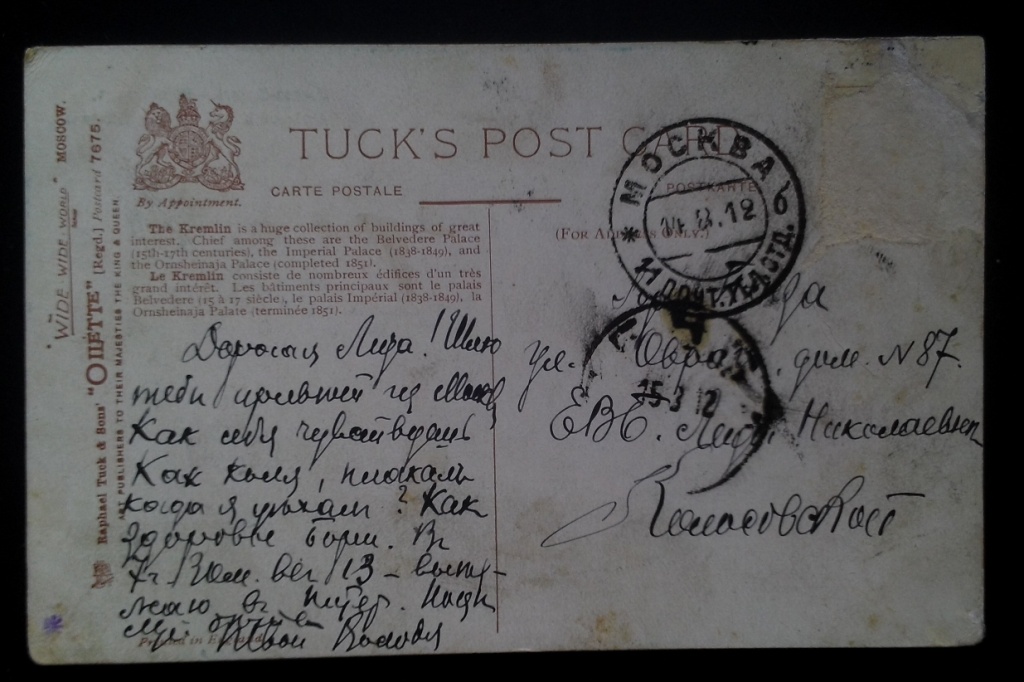 "WIDE WIDE WORLD" MOSCOW.
Raphael Tuck & Sons' "OILETTE" [Regd.] Postcard 7675.
ART PUBLISHERS TO THEIR MAJESTIES THE KING & QUEEN.
By Appointment.
TUCK'S POST CARD
CARTE POSTALE
POSTKARTE
The Kremlin is a huge collection of buildings of great
interest. Chief among these are the Belvedere Palace
(15th-17th centuries), the Imperial Palace (1838-1849), and
the Ornsheinaja Palace (completed 1851).
Le Kremlin consiste de nombreux édifices d'un très
grand intérêt. Les bâtiments principaux sont le palais
Belvedere (15 à 17 siècle), le palais Impérial (1838-1849), la
Ornsheinaja Palate (terminée 1851).
(FOR ADDRESS ONLY.)
МОСКВА
14.3.12
ПОЧТ. ОТД.
15 3 12
Дорогая Лида! Шлю
тебя привет из
Как себя чувствуешь
Как Коля, плакали
когда я уехал? Как
здоровье Бори. Въ
7 ч. веч 13-
въ Питер.
Твой Володя
Printed in England
ул. дом. N 87.
ЕВБ. Николаевне